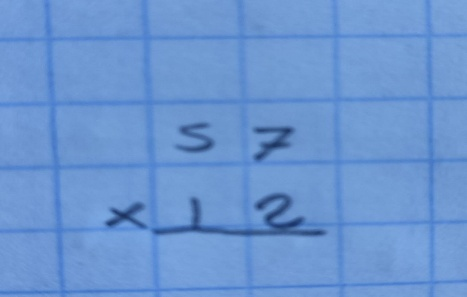 57
×12